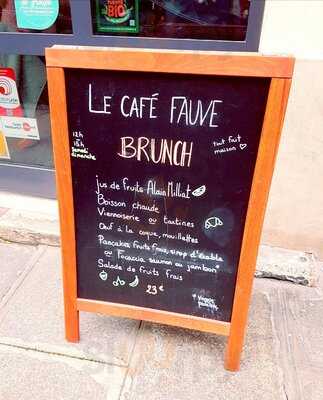 BIO
LE CAFÉ FAUVE
BRUNCH
12h
15h
Samedi
dimanche
tout fait
maison
jus de fruits Alain Milliat
Boisson chaude
Viennoiserie ou tartines
Oeuf à la coque, mouillettes
Pancakes, fruits frais, sirop d'érable
ou Focaccia saumon ou jambon*
Salade de fruits frais
23€
* Veggie
possible